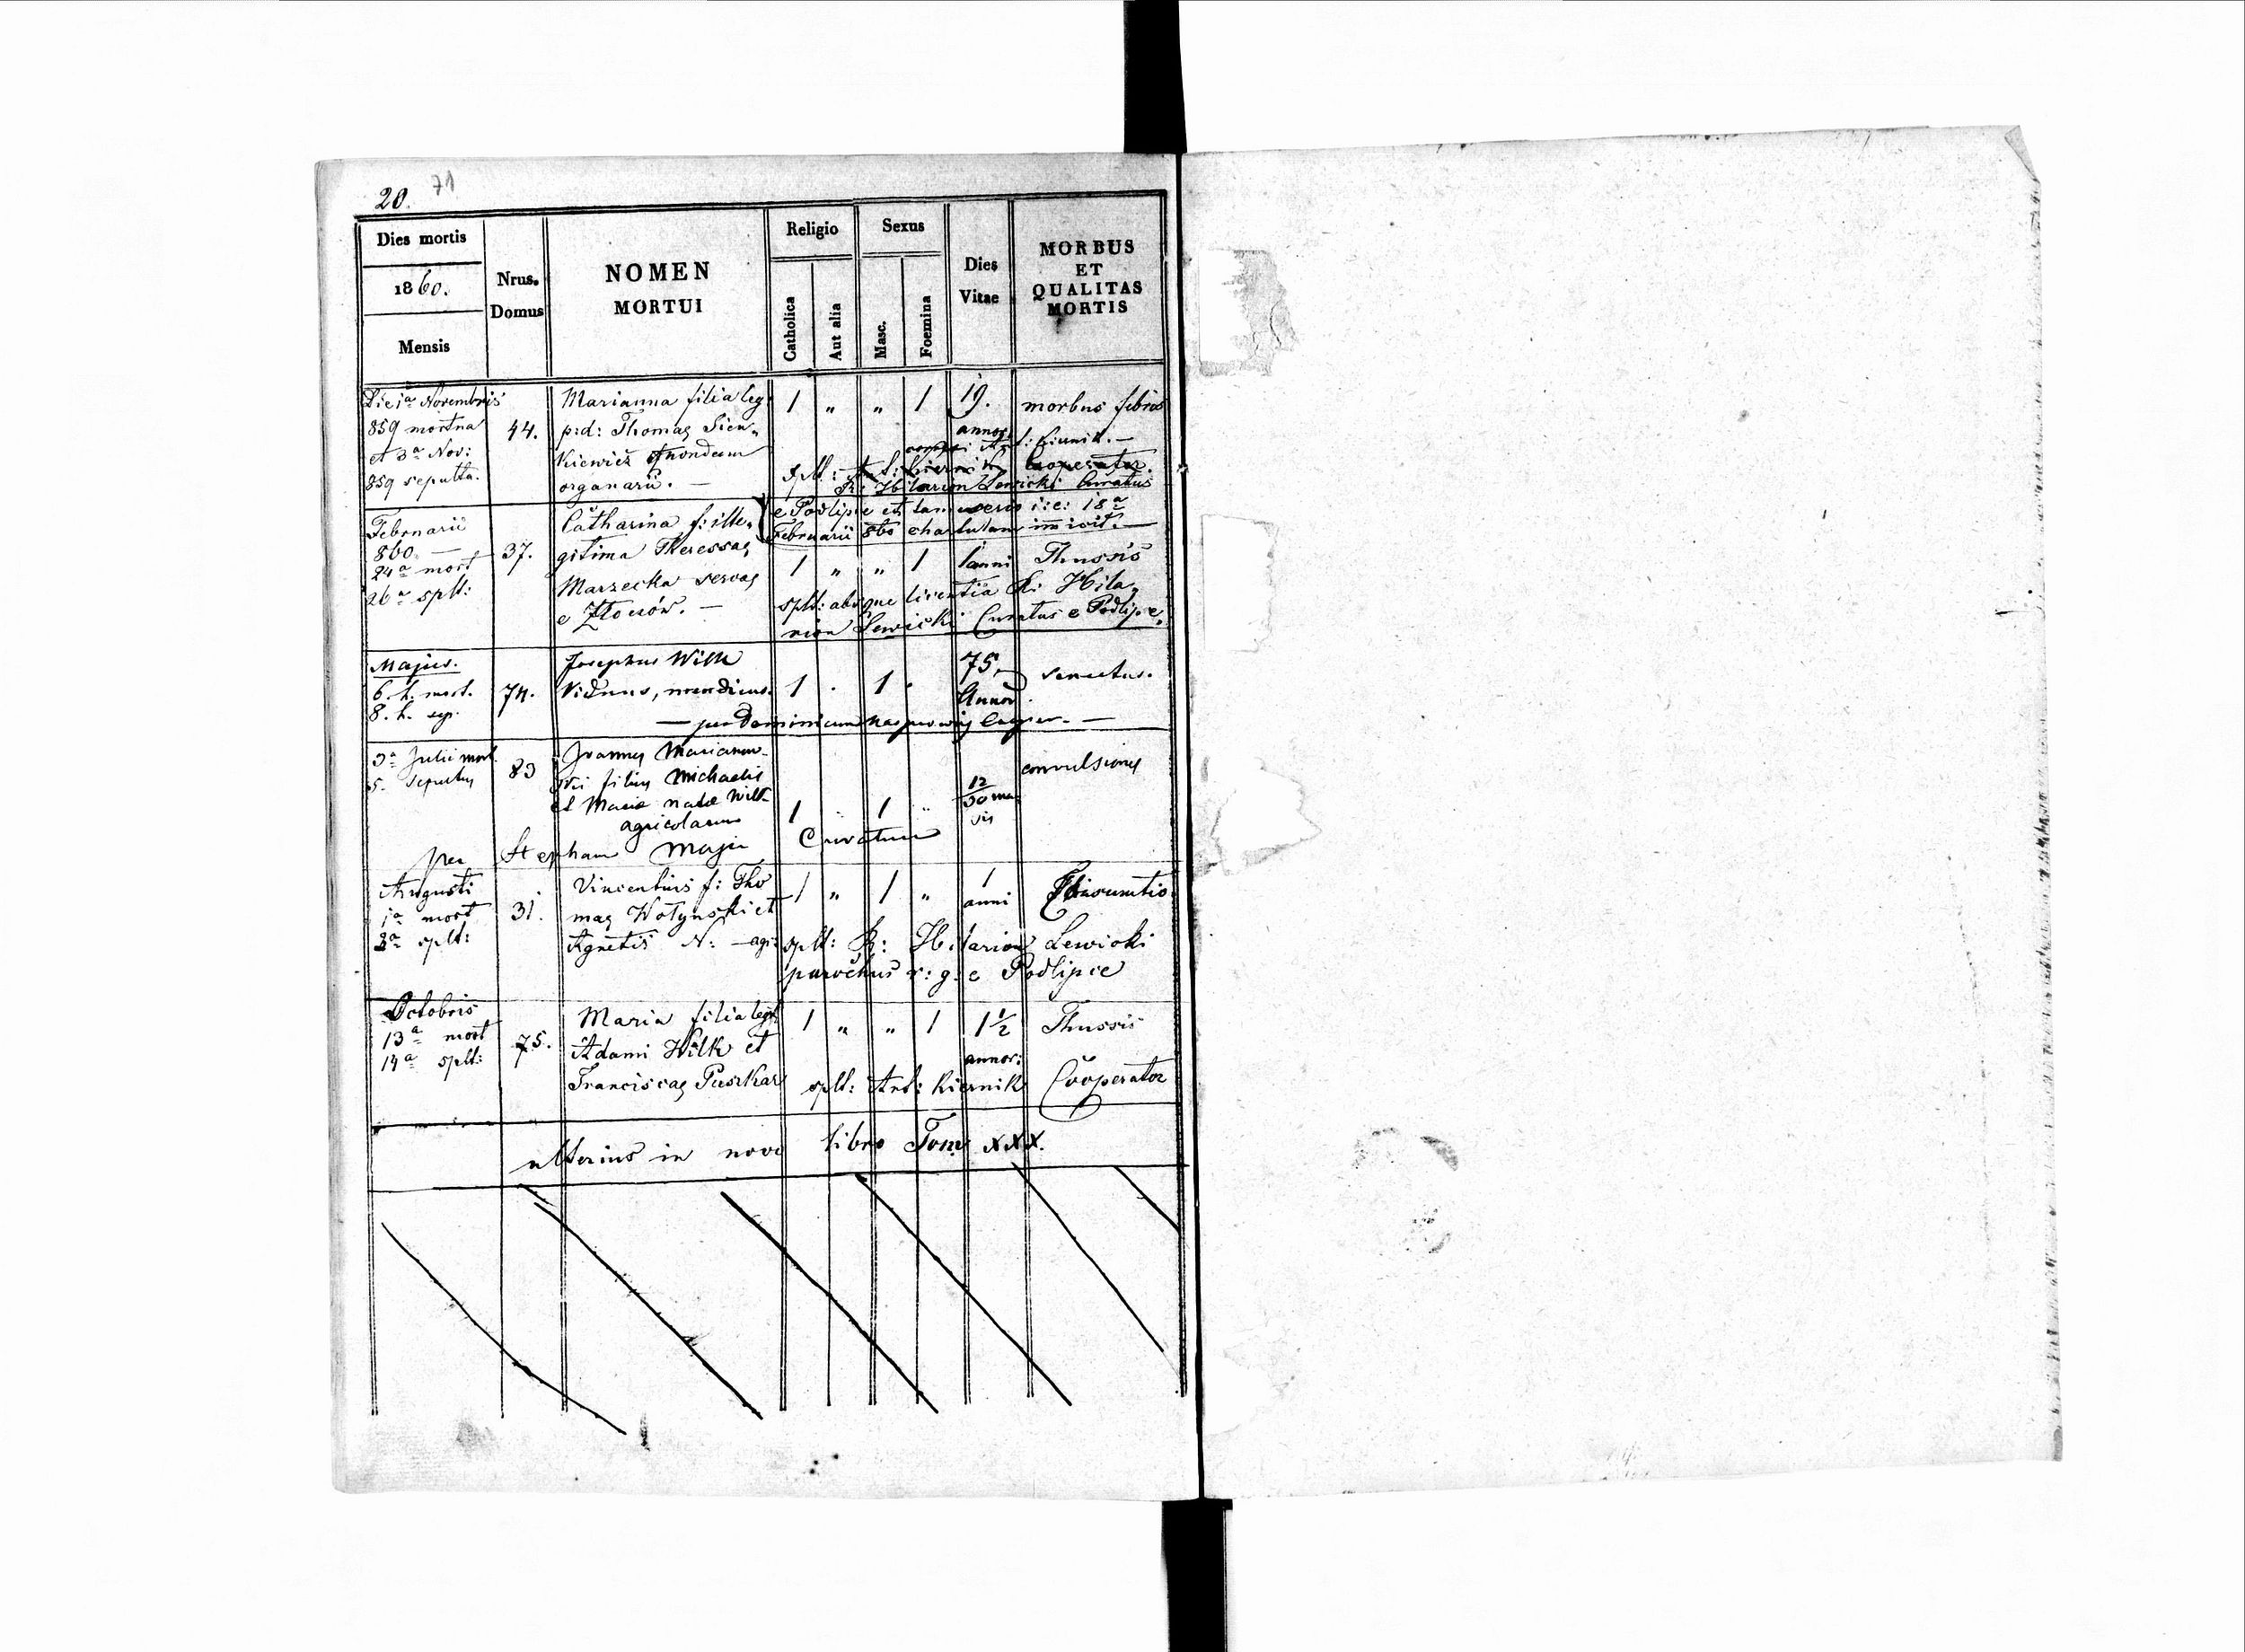 20. 71
Dies mortis
1860.
Mensis
Nrus.
Domus
NOMEN
MORTUI
Religio
Catholica
Aut alia
Sexus
Masc.
Foemina
Dies
Vitae
MORBUS
ET
QUALITAS
MORTIS
Die 1a Novembris
859 mortua
et 3a Nov:
859 sepulta.
44.
Marianna filia leg:
p:d: Thomas Sien„
kiewicz quondam
organarii. —
1 „ „ 1 19.
annor:
morbus febris
splt: Ant: Kiernik Cooperator.
R: Hilarion Lewicki Curatus
e Podlipce et tam vero i:e: 18a
Februarii 860 chartulam
Februarii
860. —
24a mort
26a splt:
37.
Catharina f: ille„
gitima Theressae
Marzecka servae
e Złoczów. —
1 „ „ 1 1 anni Thussis
splt: absque licentia R: Hila„
rion Lewicki Curatus e Podlipce.
Majus.
6. h. mort.
8. h. sep.
74.
Josephus Wilk
Viduus, mendicus.
1 . 1 . 75.
Annor
senectus.
— per Dominicum
3a Julii mort.
5. sepultus
83
Joannes
filius Michaelis
et Mariae natae Wilk
agricolarum
1 „ 1 „
12/30 men
sis
convulsiones
per Stephan Majer Curatum
Augusti
1a mort
2a splt:
31.
Vincentius f: Tho
mae Wołynski et
Agnetis N: — agr:
1 „ 1 „ 1
anni
Consumtio
splt: R: Hilarion Lewicki
parochus r: g: e Podlipce
Octobris
13a mort
14a splt:
75.
Maria filia legt:
Adami Wilk et
Franciscae Puszkar
1 „ „ 1 1½
annor:
Thussis
splt: Ant: Kiernik Cooperator
ulterius in novo libro Tom XXX.